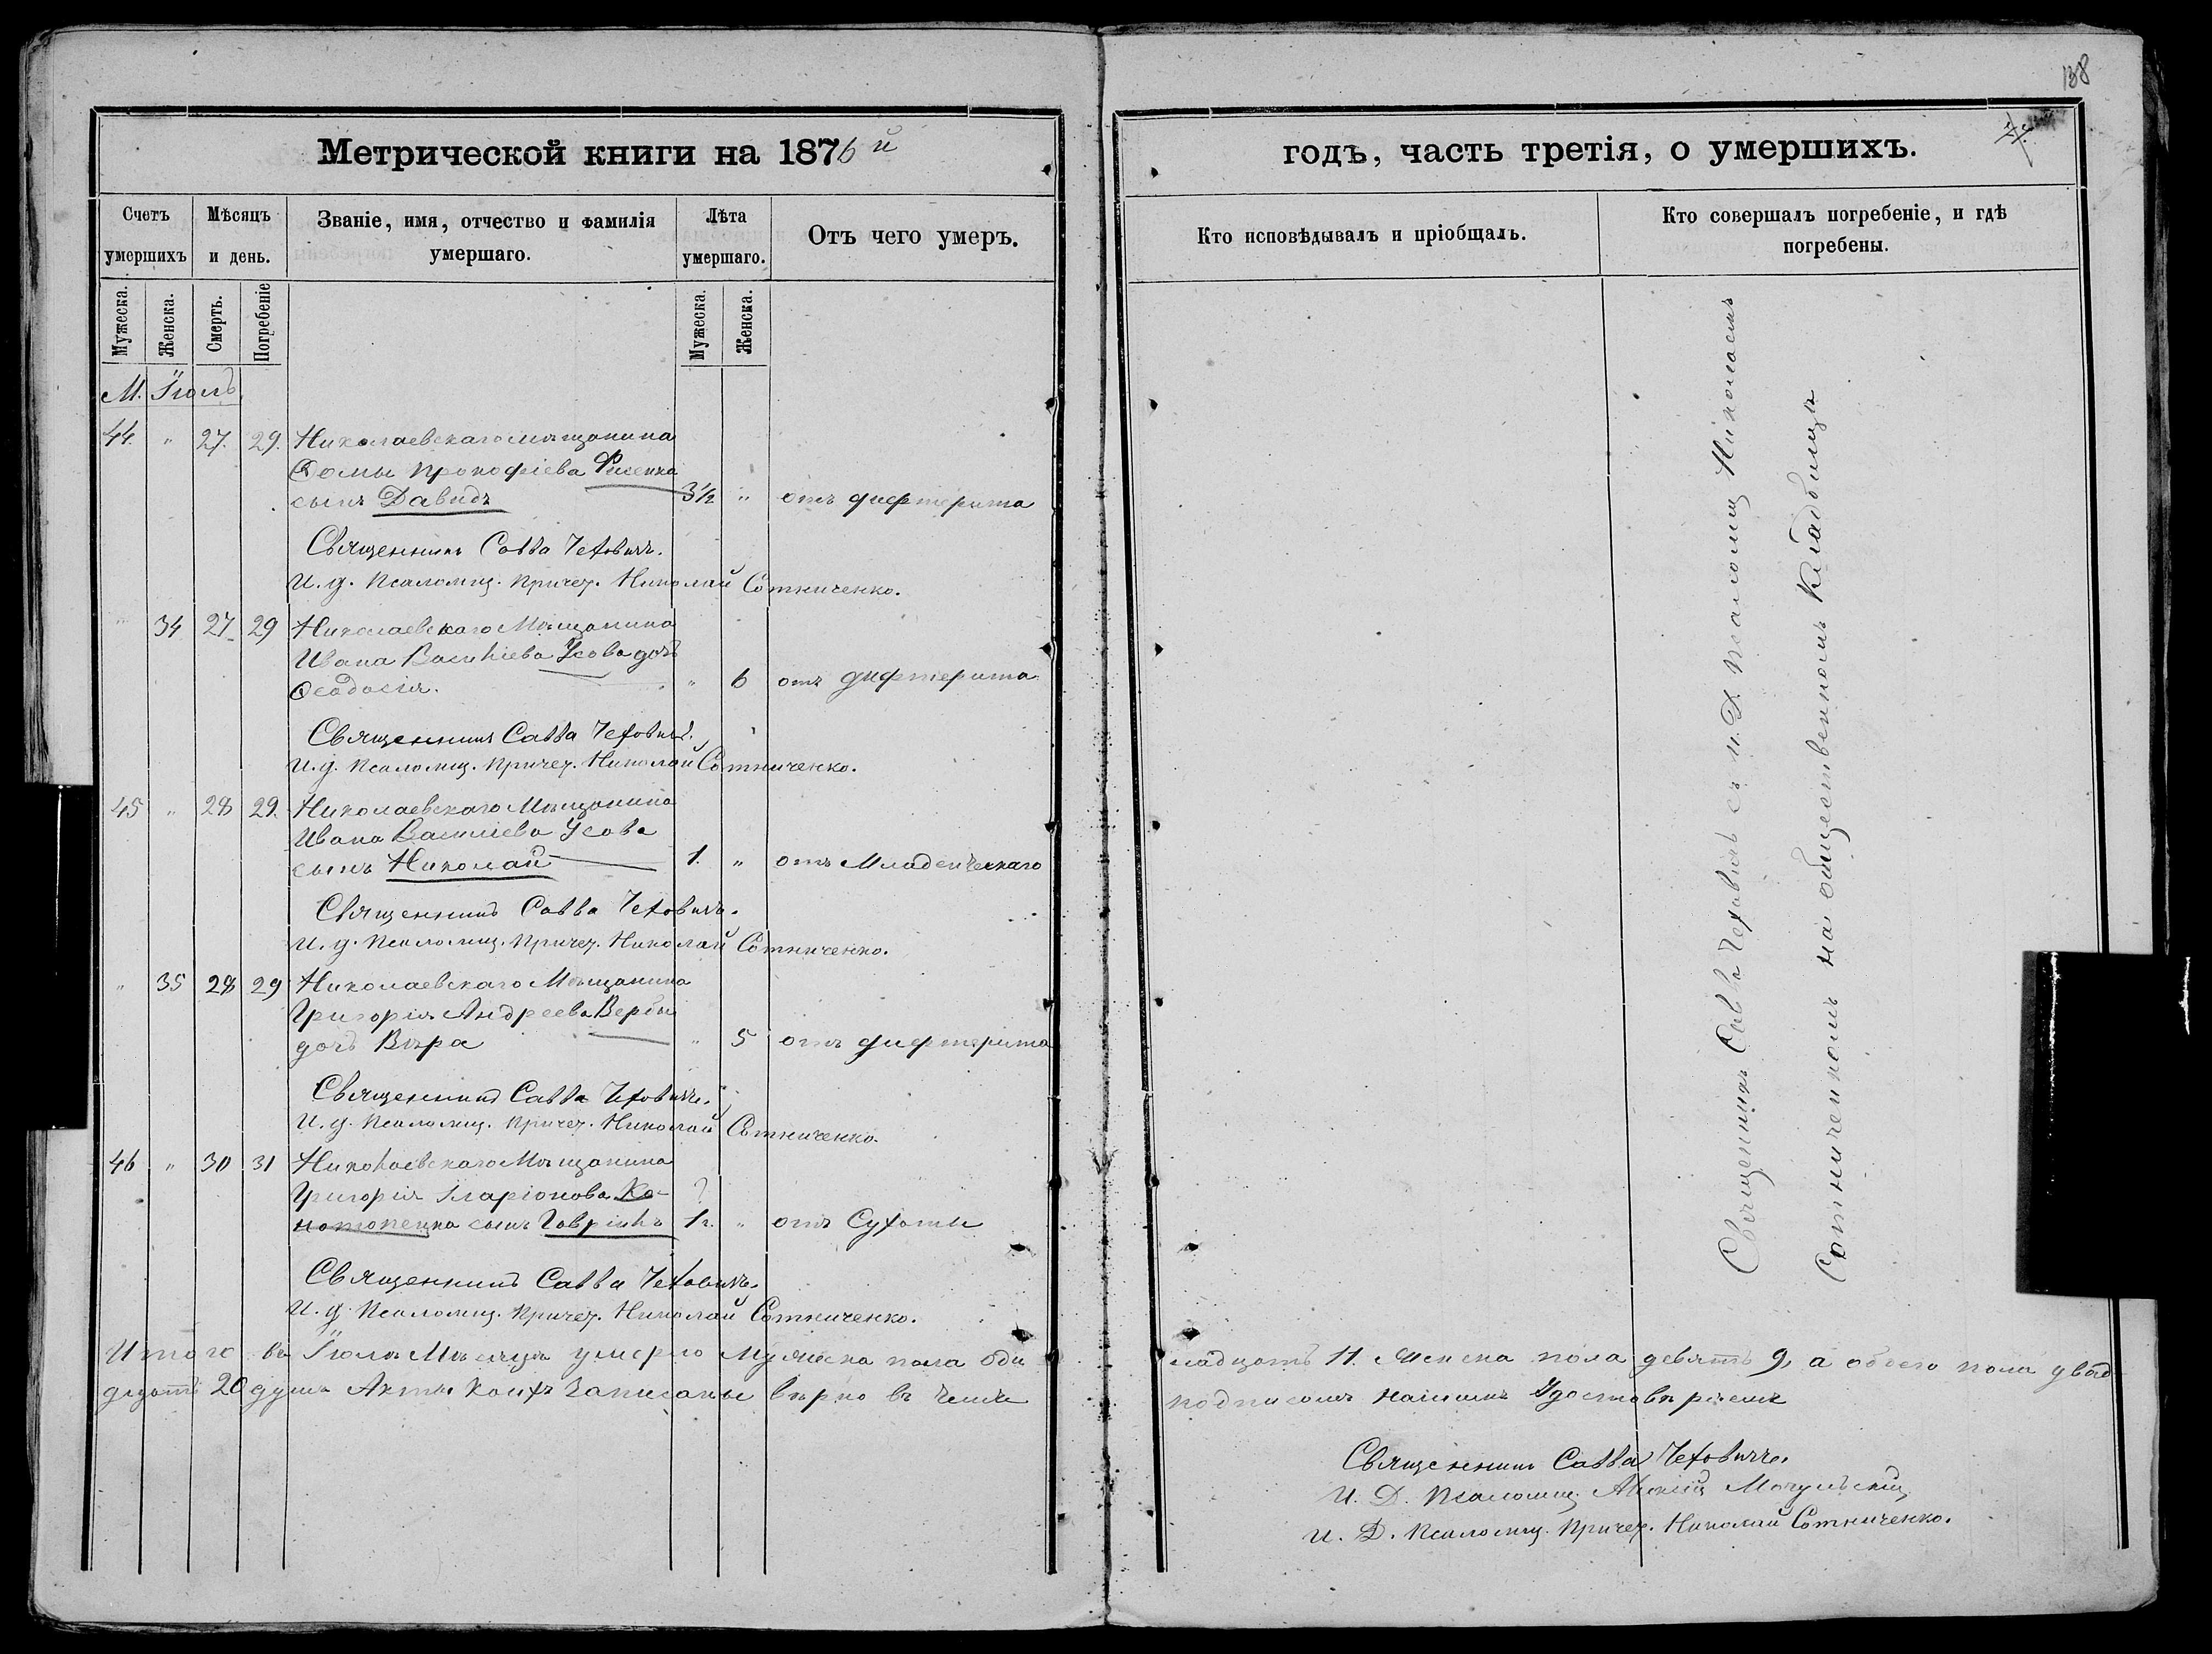 138
Метрической книги на 1876й
годъ, часть третія, о умершихъ.
Счетъ умершихъ
Мѣсяцъ и день.
Званіе, имя, отчество и фамилія умершаго.
Лѣта умершаго.
Отъ чего умеръ.
Кто исповѣдывалъ и пріобщалъ.
Кто совершалъ погребеніе, и гдѣ погребены.
Мужеска.
Женска.
Смерть.
Погребеніе
Мужеска.
Женска.
М. Іюль
44. " 27. 29. Николаевскаго мѣщанина
Ѳомы Прокофіева
сынъ Давидъ 3½ " отъ дифтерита
Священникъ Савва Чеховичъ.
И. д. Псаломщ. Причет. Николай Сотниченко.
" 34 27 29 Николаевскаго Мѣщанина
Ивана Василіева Усова дочь
Ѳеодосія. " 6 отъ дифтерита
Священникъ Савва Чеховичъ.
И. д. Псаломщ. Причет. Николай Сотниченко.
45 " 28 29. Николаевскаго Мѣщанина
Ивана Василіева Усова
сынъ Николай 1. " отъ Младенческаго
Священникъ Савва Чеховичъ.
И. д. Псаломщ. Причет. Николай Сотниченко.
" 35 28 29 Николаевскаго Мѣщанина
Григорія Андреева Вербы
дочь Вѣра " 5 отъ дифтерита
Священникъ Савва Чеховичъ.
И. д. Псаломщ. Причет. Николай Сотниченко.
46 " 30 31 Николаевскаго Мѣщанина
Григорія Іларіонова Ко- ?
нотопенка сынъ Гавріилъ 1г. " отъ Сухоты
Священникъ Савва Чеховичъ.
И. д. Псаломщ. Причет. Николай Сотниченко.
Священникъ Савва Чеховичъ съ и. д. Псаломщ Николаемъ
Сотниченкомъ на общественномъ Кладбищѣ
Итого въ Іюлѣ Мѣсяцѣ умерло Мужеска пола оди
надцать 11. Женска пола девять 9, а обоего пола двад
дцать 20 душъ Акты коихъ записаны вѣрно въ чемъ
подписомъ нашимъ Удостовѣряемъ
Священникъ Савва Чеховичъ.
И. Д. Псаломщ.
И. Д. Псаломщ. Причет. Николай Сотниченко.